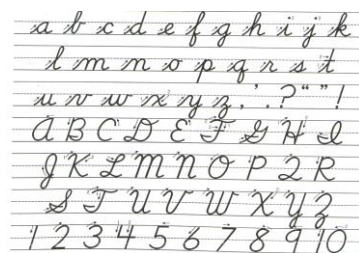 a b c d e f g h i j k
l m n o p q r s t
u v w x y z , ' . ? “ ” !
A B C D E F G H I
J K L M N O P Q R
S T U V W X Y Z
1 2 3 4 5 6 7 8 9 10